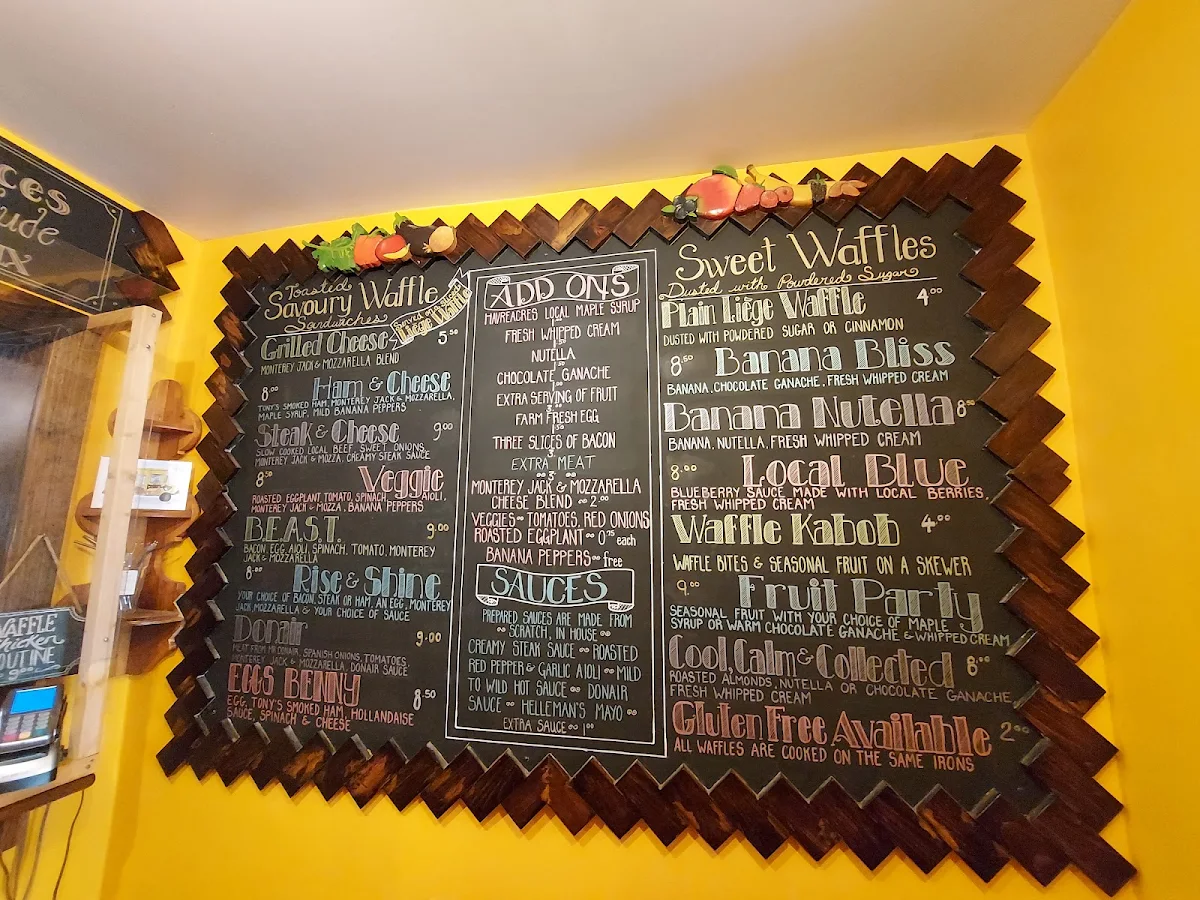 ces
tude
Toasted
Savoury Waffle
Sandwiches
Served on a
Liège Waffle
Grilled Cheese 5.50
MONTEREY JACK & MOZZARELLA BLEND
8.00 Ham & Cheese
TONY'S SMOKED HAM, MONTEREY JACK & MOZZARELLA,
MAPLE SYRUP, MILD BANANA PEPPERS
Steak & Cheese 9.00
SLOW COOKED LOCAL BEEF, SWEET ONIONS,
MONTEREY JACK & MOZZA, CREAMY STEAK SAUCE
8.50 Veggie
ROASTED EGGPLANT, TOMATO, SPINACH, AIOLI,
MONTEREY JACK & MOZZA, BANANA PEPPERS
B.E.A.S.T. 9.00
BACON, EGG, AIOLI, SPINACH, TOMATO, MONTEREY
JACK & MOZZARELLA
8.00 Rise & Shine
YOUR CHOICE OF BACON, STEAK OR HAM, AN EGG, MONTEREY
JACK, MOZZARELLA & YOUR CHOICE OF SAUCE
Donair 9.00
MEAT FROM MR DONAIR, SPANISH ONIONS, TOMATOES,
MONTEREY JACK & MOZZARELLA, DONAIR SAUCE
EGGS BENNY 8.50
EGG, TONY'S SMOKED HAM, HOLLANDAISE
SAUCE, SPINACH & CHEESE
ADD ONS
HAVREACRES LOCAL MAPLE SYRUP
FRESH WHIPPED CREAM
NUTELLA
CHOCOLATE GANACHE
EXTRA SERVING OF FRUIT
FARM FRESH EGG
THREE SLICES OF BACON
EXTRA MEAT
MONTEREY JACK & MOZZARELLA
CHEESE BLEND 2.00
VEGGIES TOMATOES, RED ONIONS
ROASTED EGGPLANT 0.75 each
BANANA PEPPERS free
SAUCES
PREPARED SAUCES ARE MADE FROM
SCRATCH, IN HOUSE
CREAMY STEAK SAUCE ROASTED
RED PEPPER & GARLIC AIOLI MILD
TO WILD HOT SAUCE DONAIR
SAUCE HELLEMAN'S MAYO
EXTRA SAUCE 1.00
Sweet Waffles
Dusted with Powdered Sugar
Plain Liège Waffle 4.00
DUSTED WITH POWDERED SUGAR OR CINNAMON
8.50 Banana Bliss
BANANA, CHOCOLATE GANACHE, FRESH WHIPPED CREAM
Banana Nutella 8.50
BANANA, NUTELLA, FRESH WHIPPED CREAM
8.00 Local Blue
BLUEBERRY SAUCE MADE WITH LOCAL BERRIES,
FRESH WHIPPED CREAM
Waffle Kabob 4.00
WAFFLE BITES & SEASONAL FRUIT ON A SKEWER
9.00 Fruit Party
SEASONAL FRUIT WITH YOUR CHOICE OF MAPLE
SYRUP OR WARM CHOCOLATE GANACHE & WHIPPED CREAM
Cool, Calm & Collected 8.00
ROASTED ALMONDS, NUTELLA OR CHOCOLATE GANACHE,
FRESH WHIPPED CREAM
Gluten Free Available 2.00
ALL WAFFLES ARE COOKED ON THE SAME IRONS
WAFFLE
chicken
OUTINE